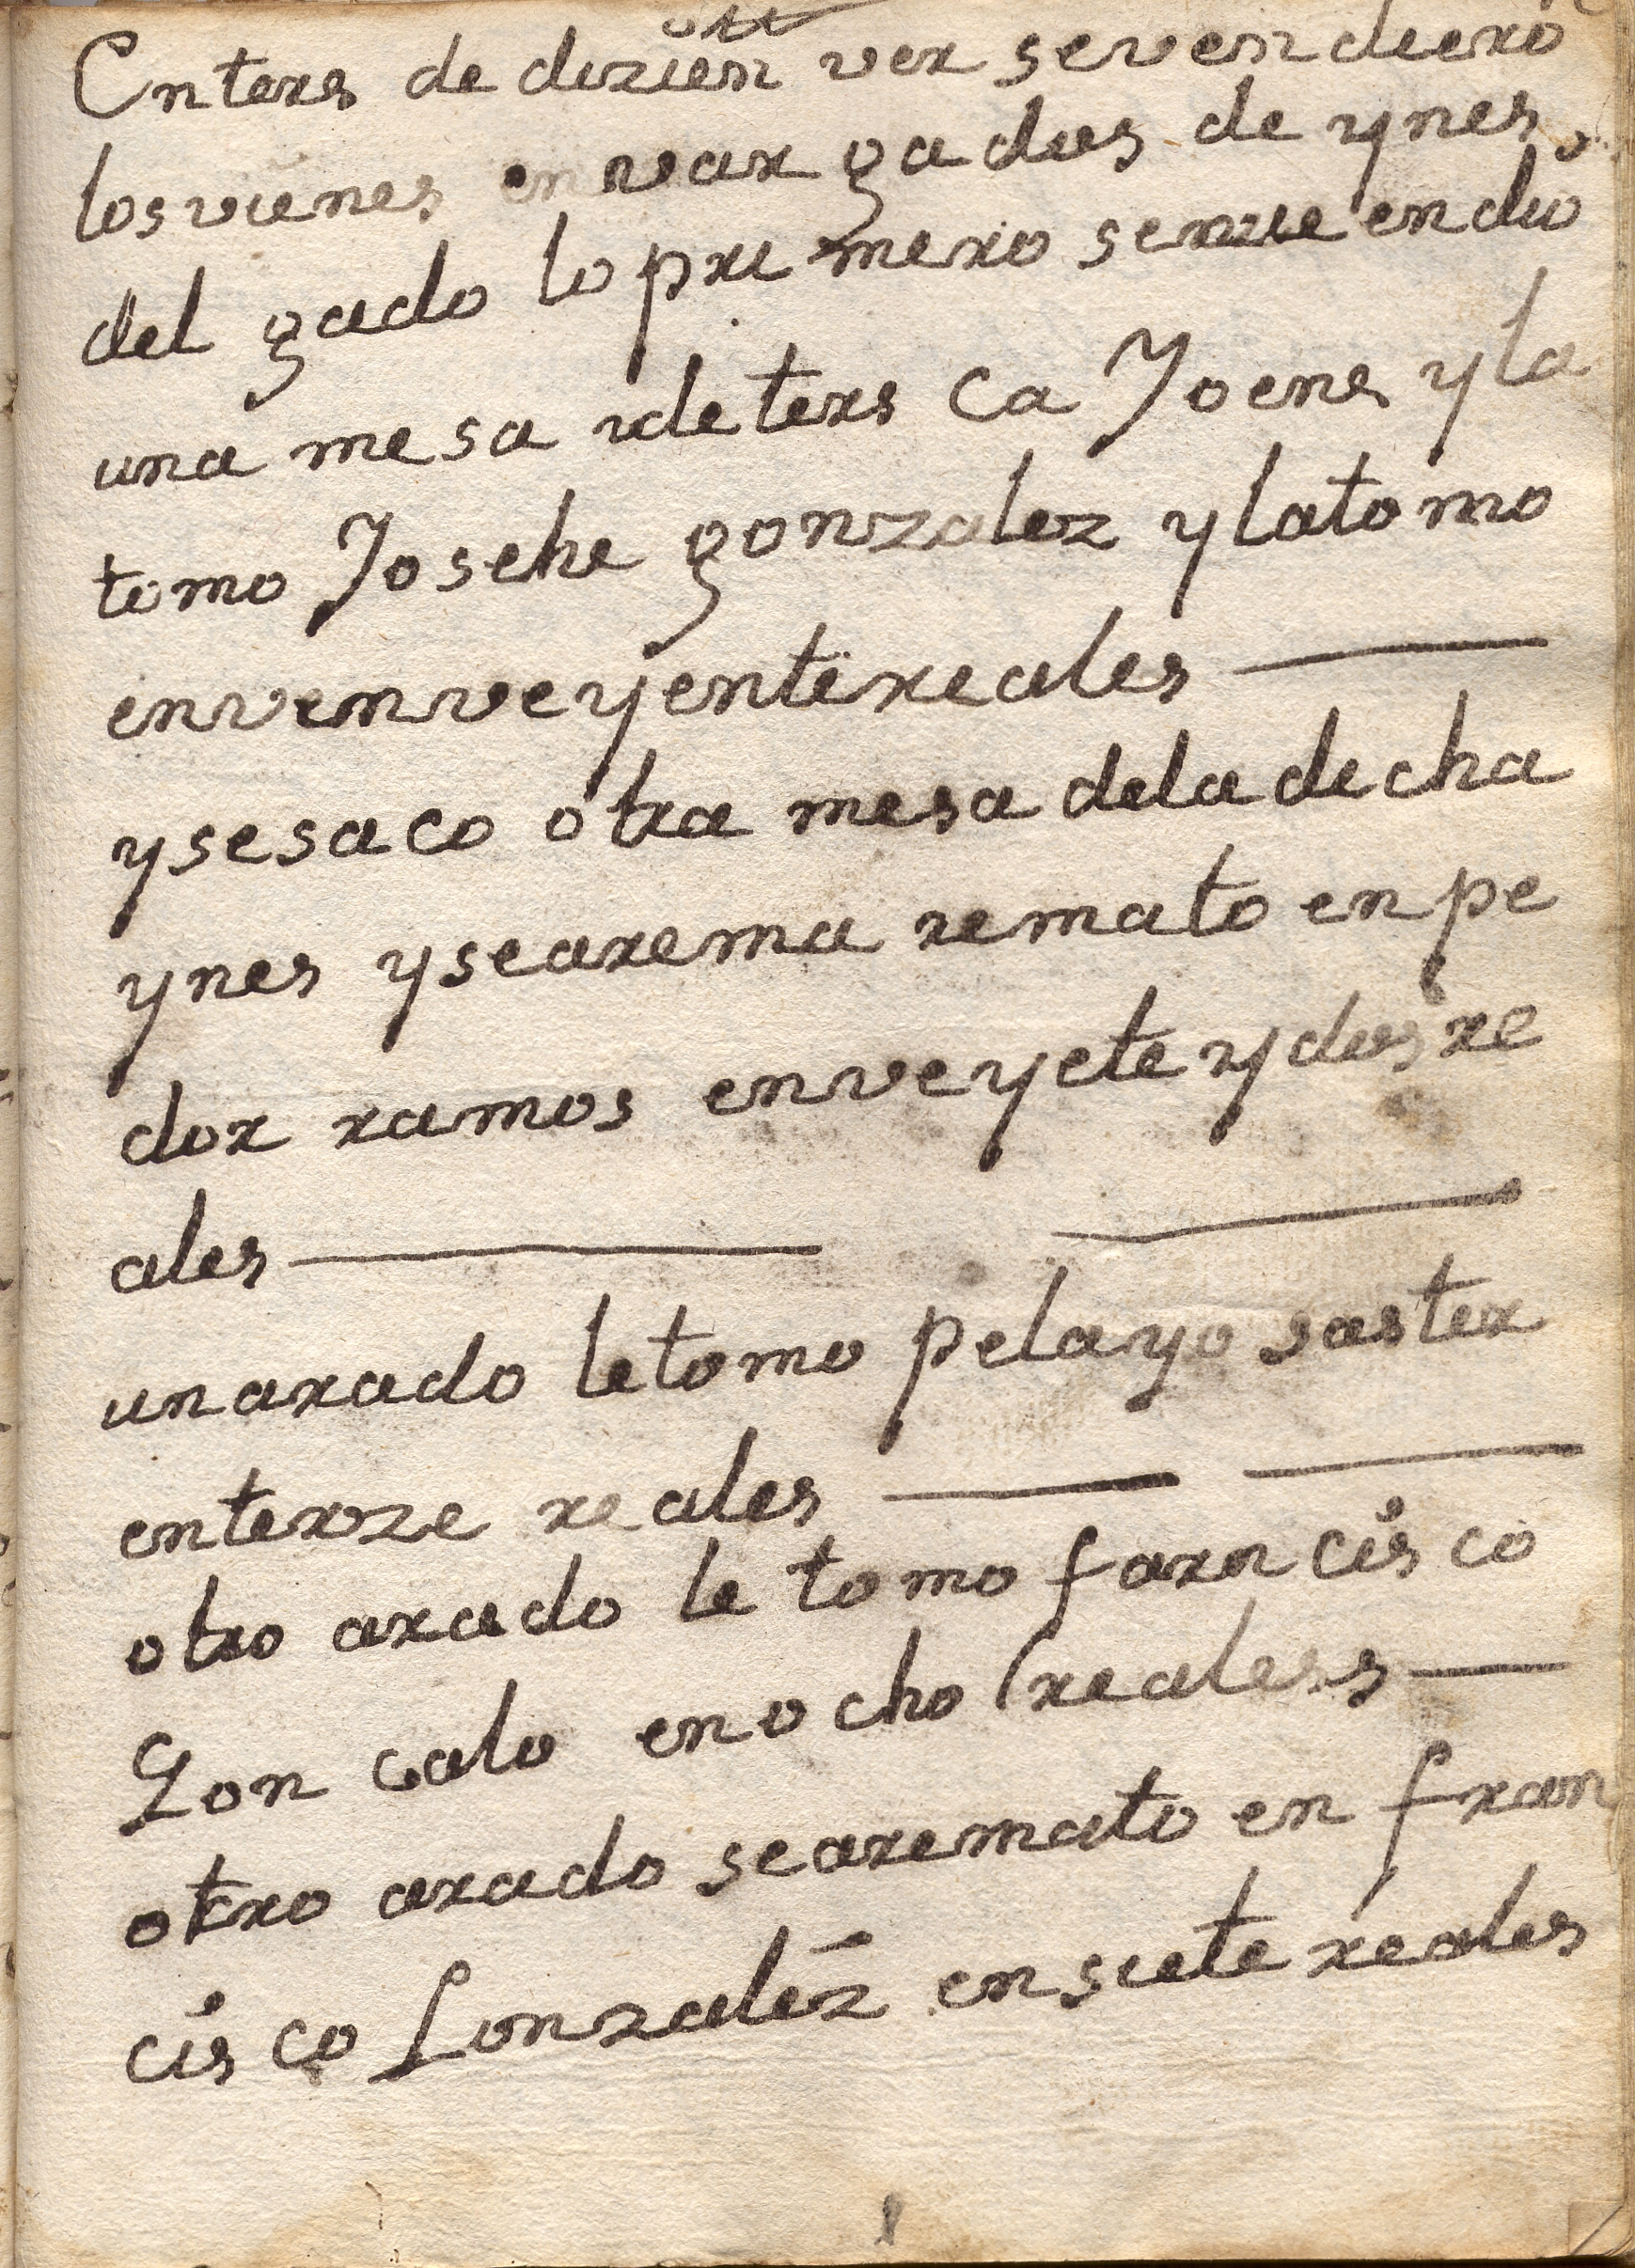 En ters de dizien ver se vendiero
los vienes en var gados de ynes
del gado lo pri mero se ve endio
una mesa de ters ca Joenes y la
tomo Josehe gonzalez y la tomo
en ven veyente reales
y se saco otra mesa de la dicha
ynes y se arema remato en pe
dor ramos en veyete y dos re
ales
un arado le tomo pelayo saster
en terze reales
otro arado le tomo farncisco
Gon calo en ocho reales
otro arado se aremato en fran
cisco Gonzalez en siete reales